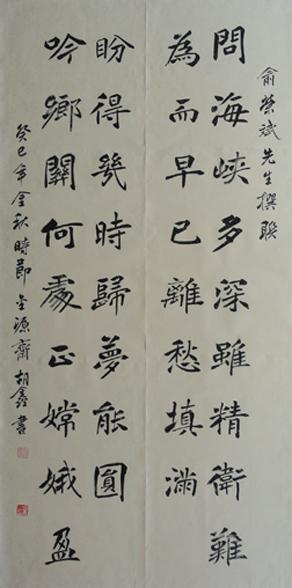 俞榮斌先生撰聯
問海峽多深雖精衛難
為而早已離愁填滿
吟鄉關何處正嫦娥盈
盼得幾時歸夢能圓
癸巳年金秋時節源齋胡鑫書